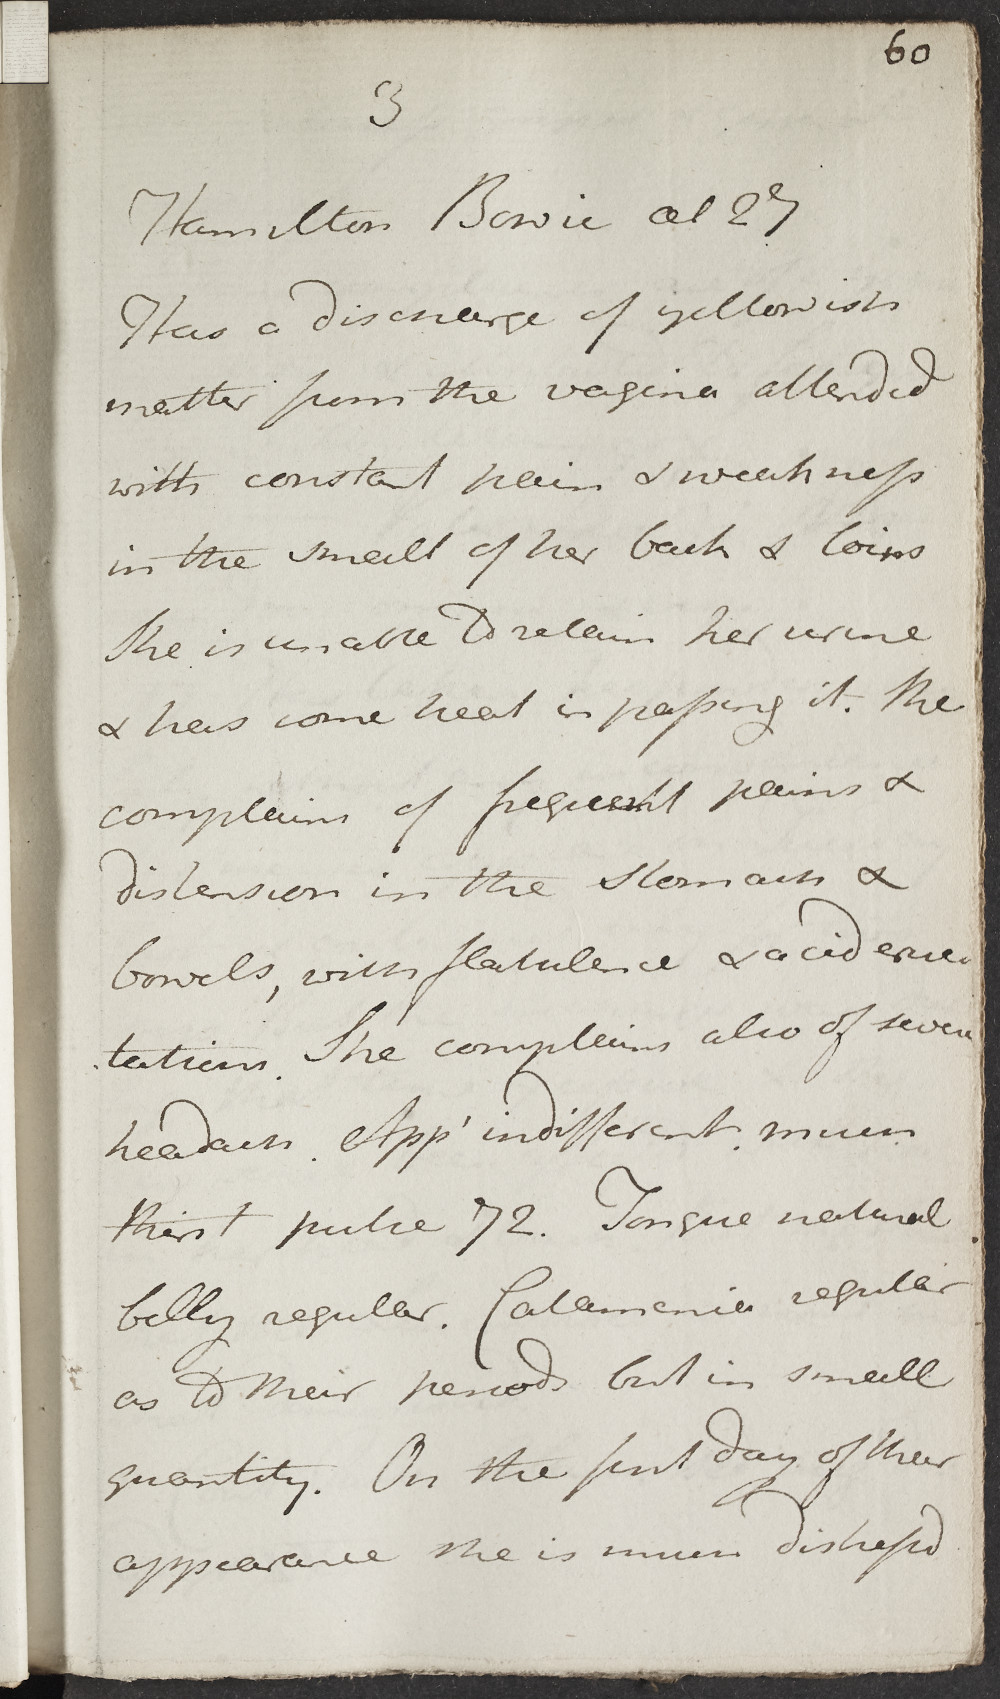 60
3
Hamilton Bowie aet 27
Has a discharge of yellowish
matter from the vagina attended
with constant pain & weakness
in the small of her back & loins
She is unable to retain her urine
& has some heat in passing it. She
complains of frequent pains &
distension in the stomach &
bowels, with flatulence & acid eruc-
tations. She complains also of severe
headach. App' indifferent, much
thirst pulse 72. Tongue natural
belly regular. Catamenia regular
as to their periods but in small
quantity. On the first day of their
appearance she is much distress'd